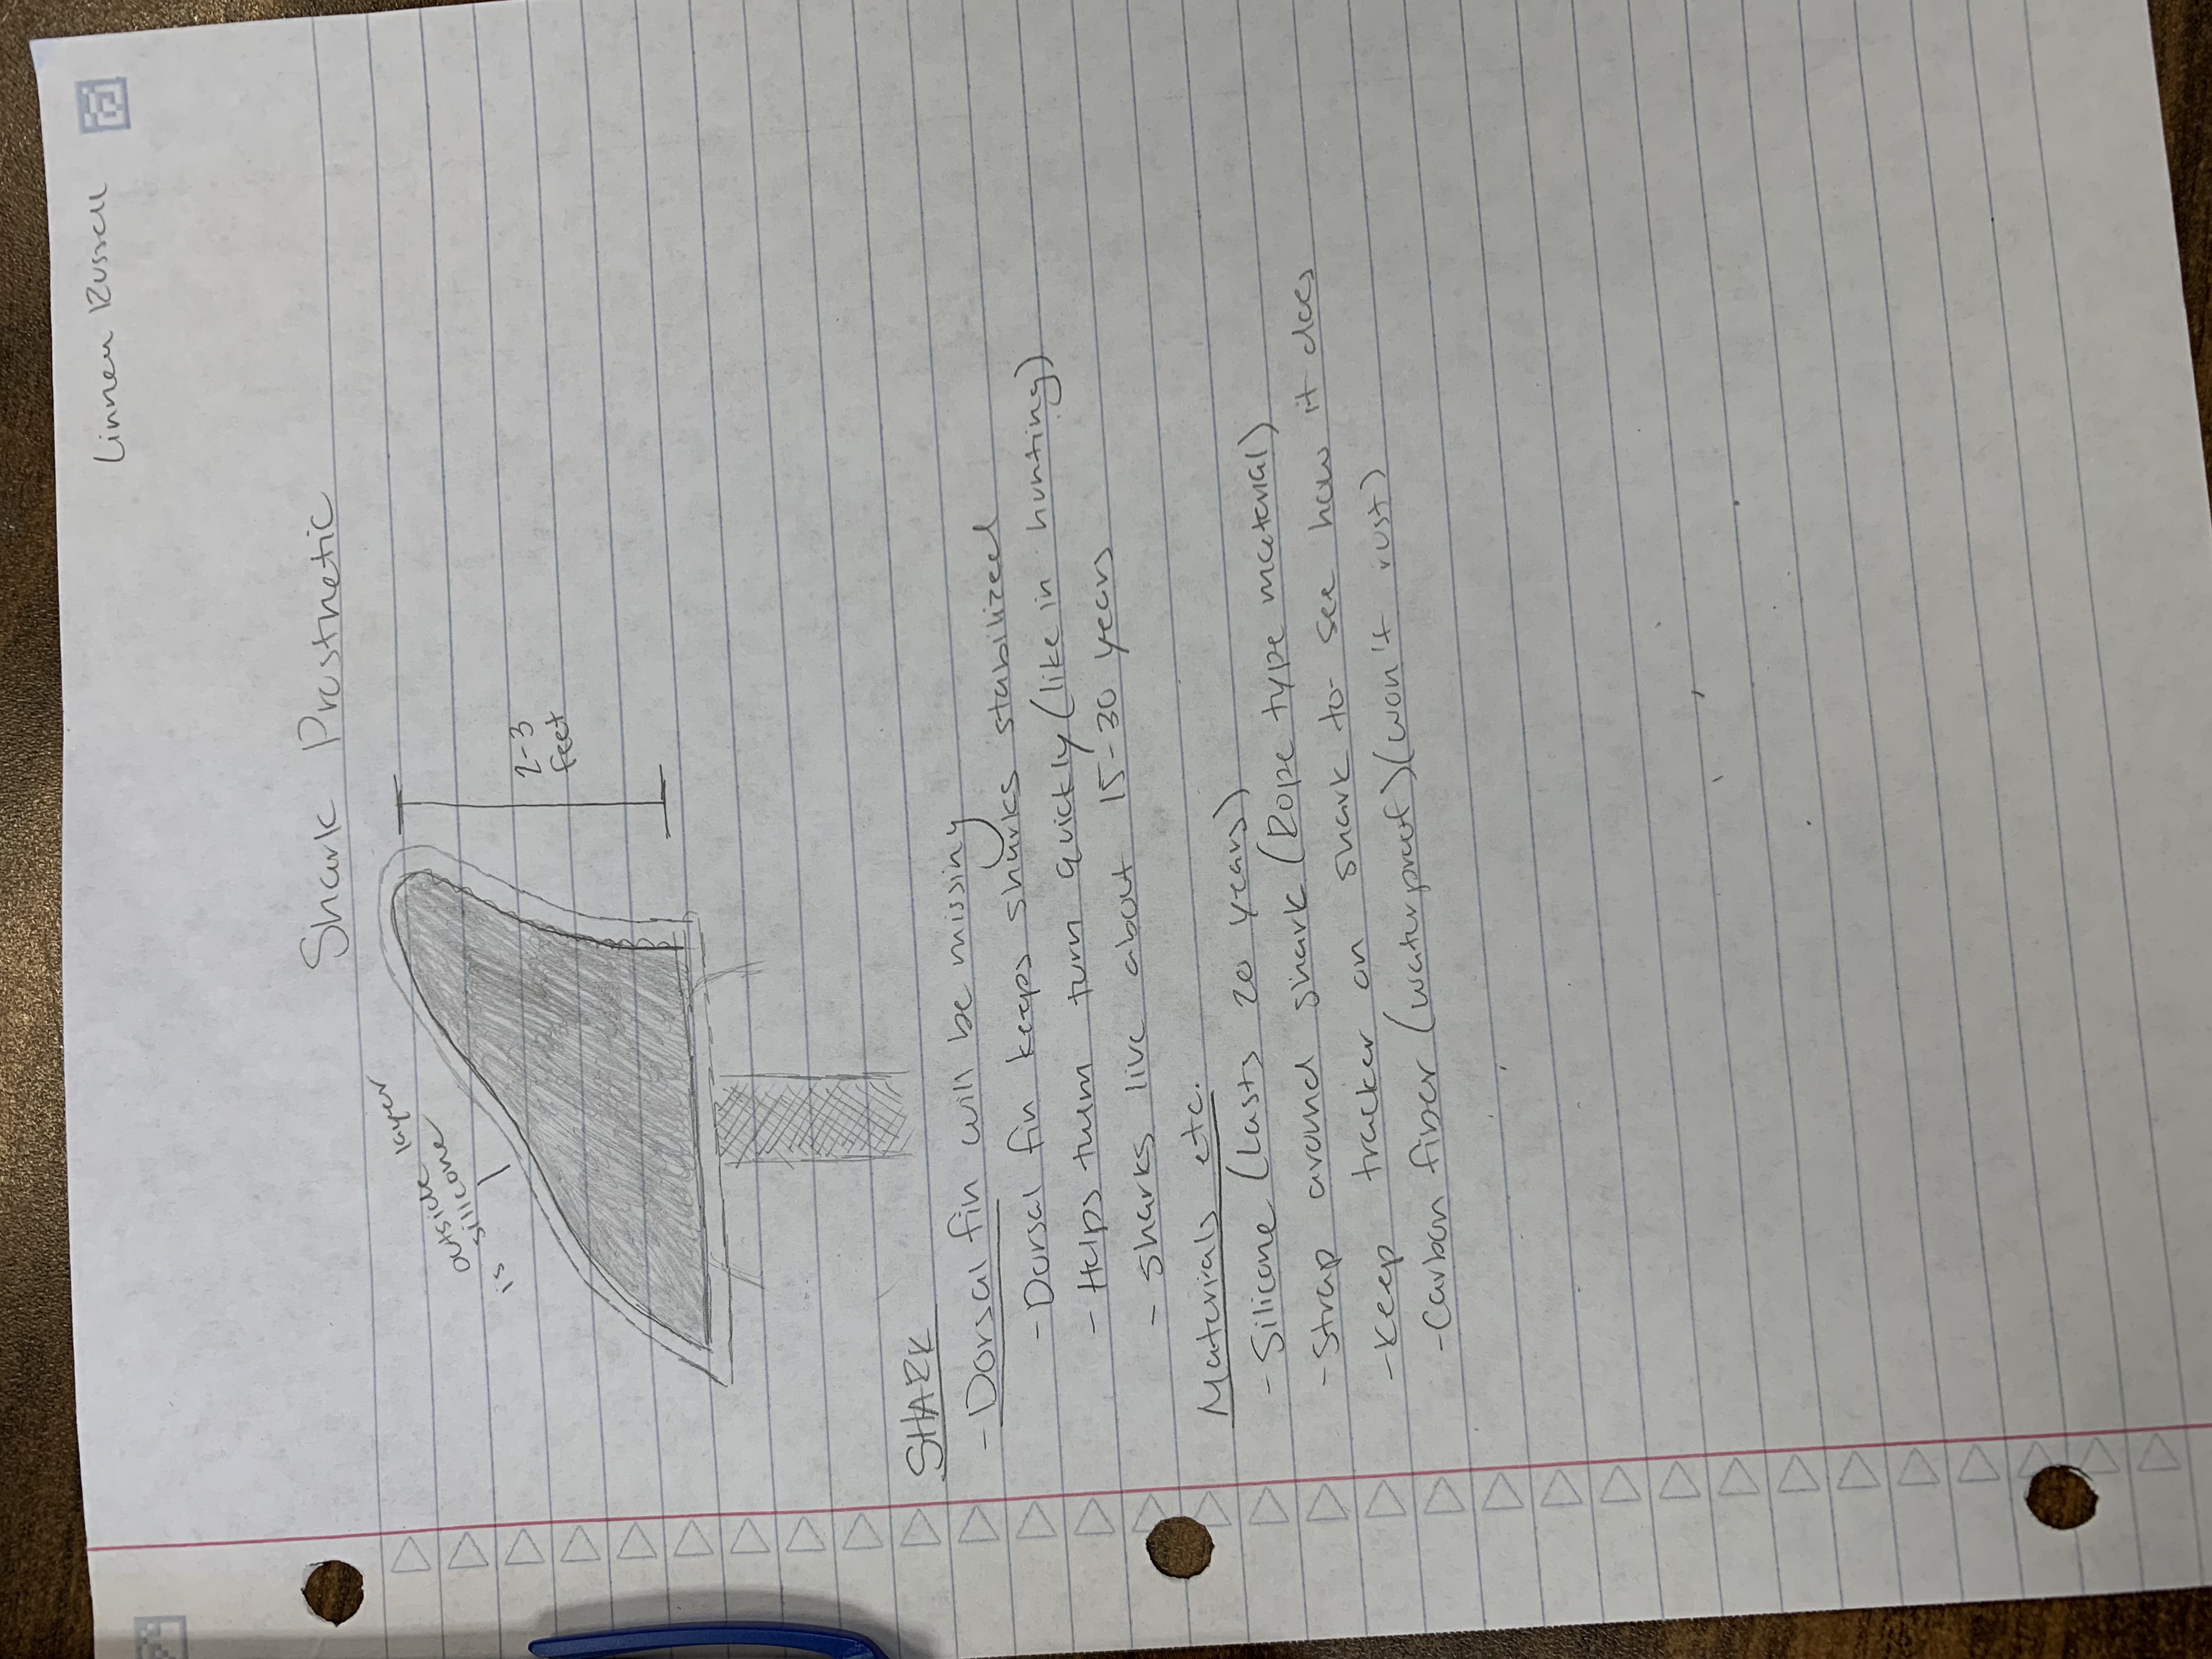 Linnea Russell
Shark Prosthetic
outside layer
is silicone
2-3
feet
SHARK
- Dorsal fin will be missing
- Dorsal fin keeps sharks stabilized
- Helps them turn quickly (like in hunting)
- sharks live about 15-30 years
Materials etc.
- Silicone (Lasts 20 years)
- Strap around shark (Rope type material)
- Keep tracker on shark to see how it does
- Carbon fiber (waterproof) (won't rust)